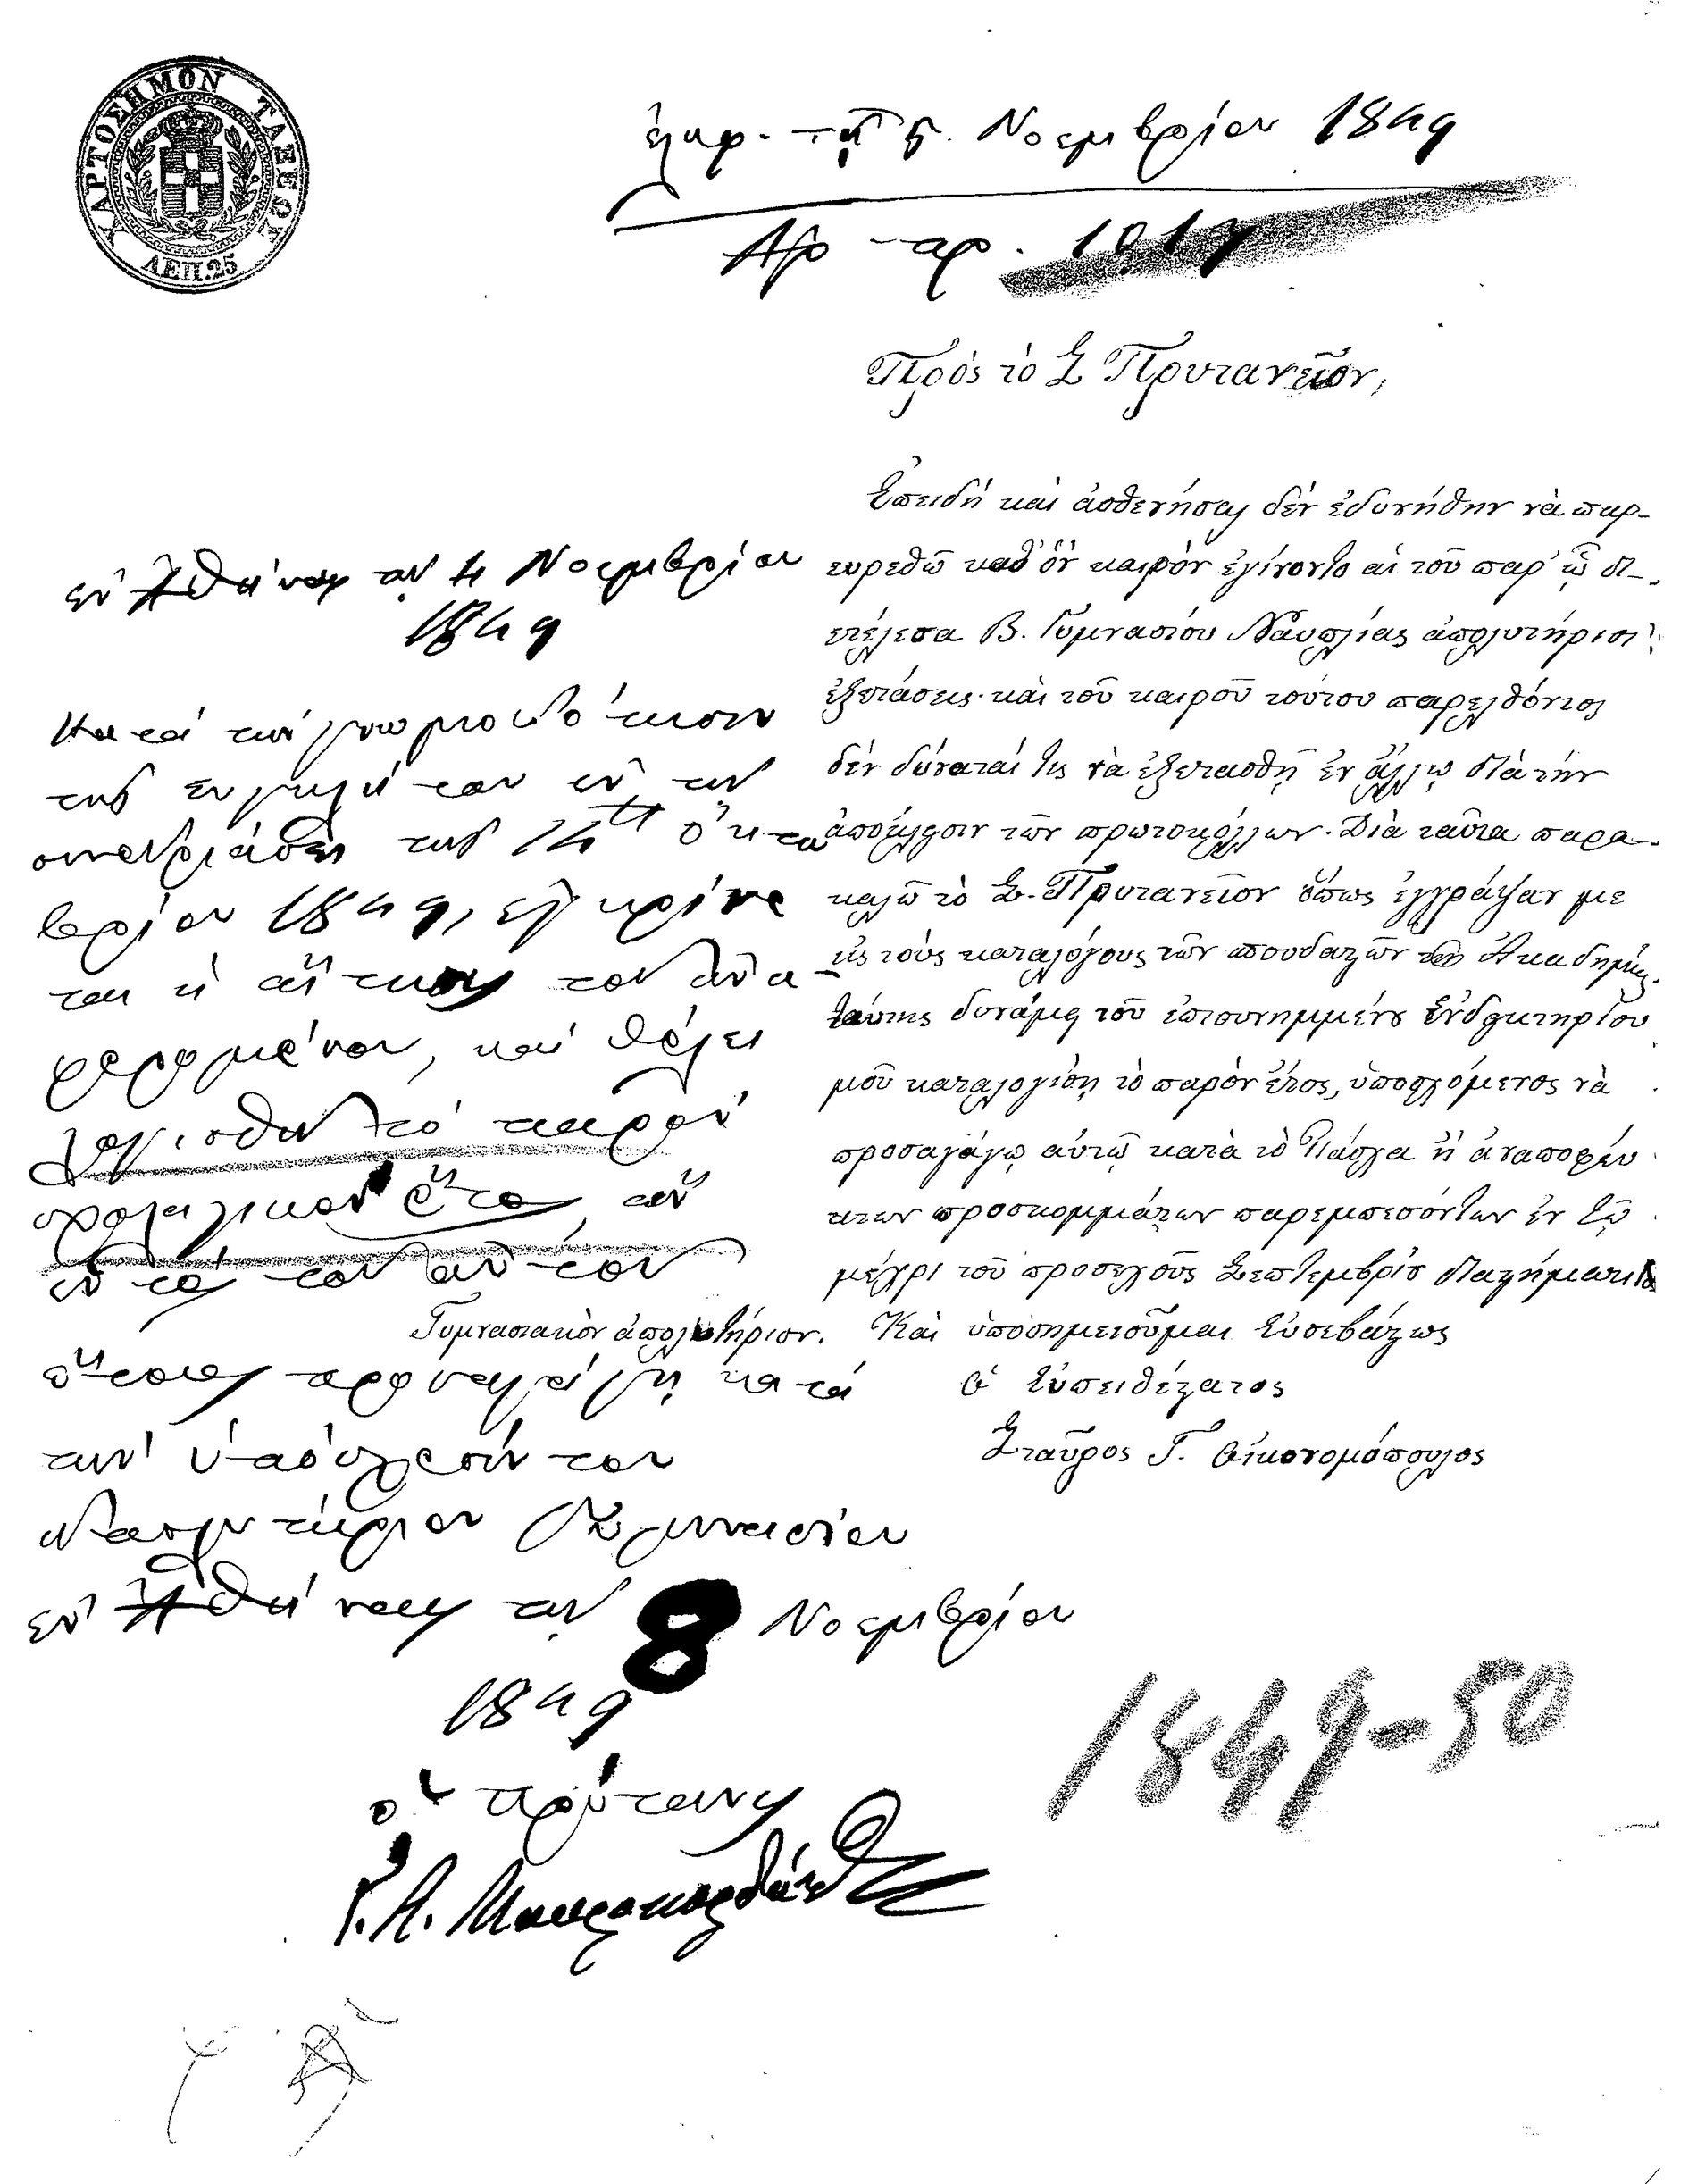 ΧΑΡΤΟΣΗΜΟΝ ΤΑΞΕΩΣ
ΛΕΠ.25
ἐλήφ. τῇ 5. Νοεμβρίου 1849
Ἀρ πρ. 1017
Πρὸς τὸ Σ Πρυτανεῖον,
Ἐπειδὴ καὶ ἀσθενήσας δὲν ἐδυνήθην νὰ παρ-
ευρεθῶ καθ' ὃν καιρὸν ἐγίνοντο αἱ τοῦ παρ' ᾧ δι-
ετέλεσα Β. Γυμνασίου Ναυπλίας ἀπολυτήριοι
ἐξετάσεις· καὶ τοῦ καιροῦ τούτου παρελθόντος
δὲν δύναταί τις νὰ ἐξετασθῇ ἐν ἄλλῳ διὰ τὴν
τῶν πρωτοκόλλων. Διὰ ταῦτα παρα-
καλῶ τὸ Σ. Πρυτανεῖον ὅπως ἐγγράψαν με
εἰς τοὺς καταλόγους τῶν σπουδαστῶν τῆς Ἀκαδημίας
ταύτης δυνάμει τοῦ ἐπισυνημμένου Ἐνδεικτηρίου
μοῦ καταλογίσῃ τὸ παρὸν ἔτος, ὑποσχόμενος νὰ
προσαγάγω αὐτῷ κατὰ τὸ Πάσχα ἢ ἀναποφεύ
κτων προσκομμάτων παρεμπεσόντων ἐν τῷ
μέχρι τοῦ προσεχοῦς Σεπτεμβρίου διαστήματι τὸ
Γυμνασιακὸν ἀπολυτήριον. Καὶ ὑποσημειοῦμαι Εὐσεβάστως
ὁ Εὐπειθέστατος
Σταῦρος Γ. Οἰκονομόπουλος
ἐν Ἀθήναις τῇ 4 Νοεμβρίου
1849
Κατὰ τὴν γνωμοδότησιν
τῆς συγκλήτου ἐν τῇ
συνεδριάσει τῆς 14 Ὀκτω
βρίου 1849, ἐγκρίνε
ται ἡ αἴτησις τοῦ ἀνα
φερομένου, καὶ θέλει
λογισθῆ τὸ παρὸν
σχολικὸν ἔτος, ἂν
ἐντὸς τοῦ αὐτοῦ
ἔτους προσαγάγῃ κατὰ
τὴν ὑπόσχεσίν του
Γυμνασίου
ἐν Ἀθήναις τῇ 8 Νοεμβρίου
1849
ὁ Πρύτανις
Γ. Α. Μαυροκορδάτος
1849-50